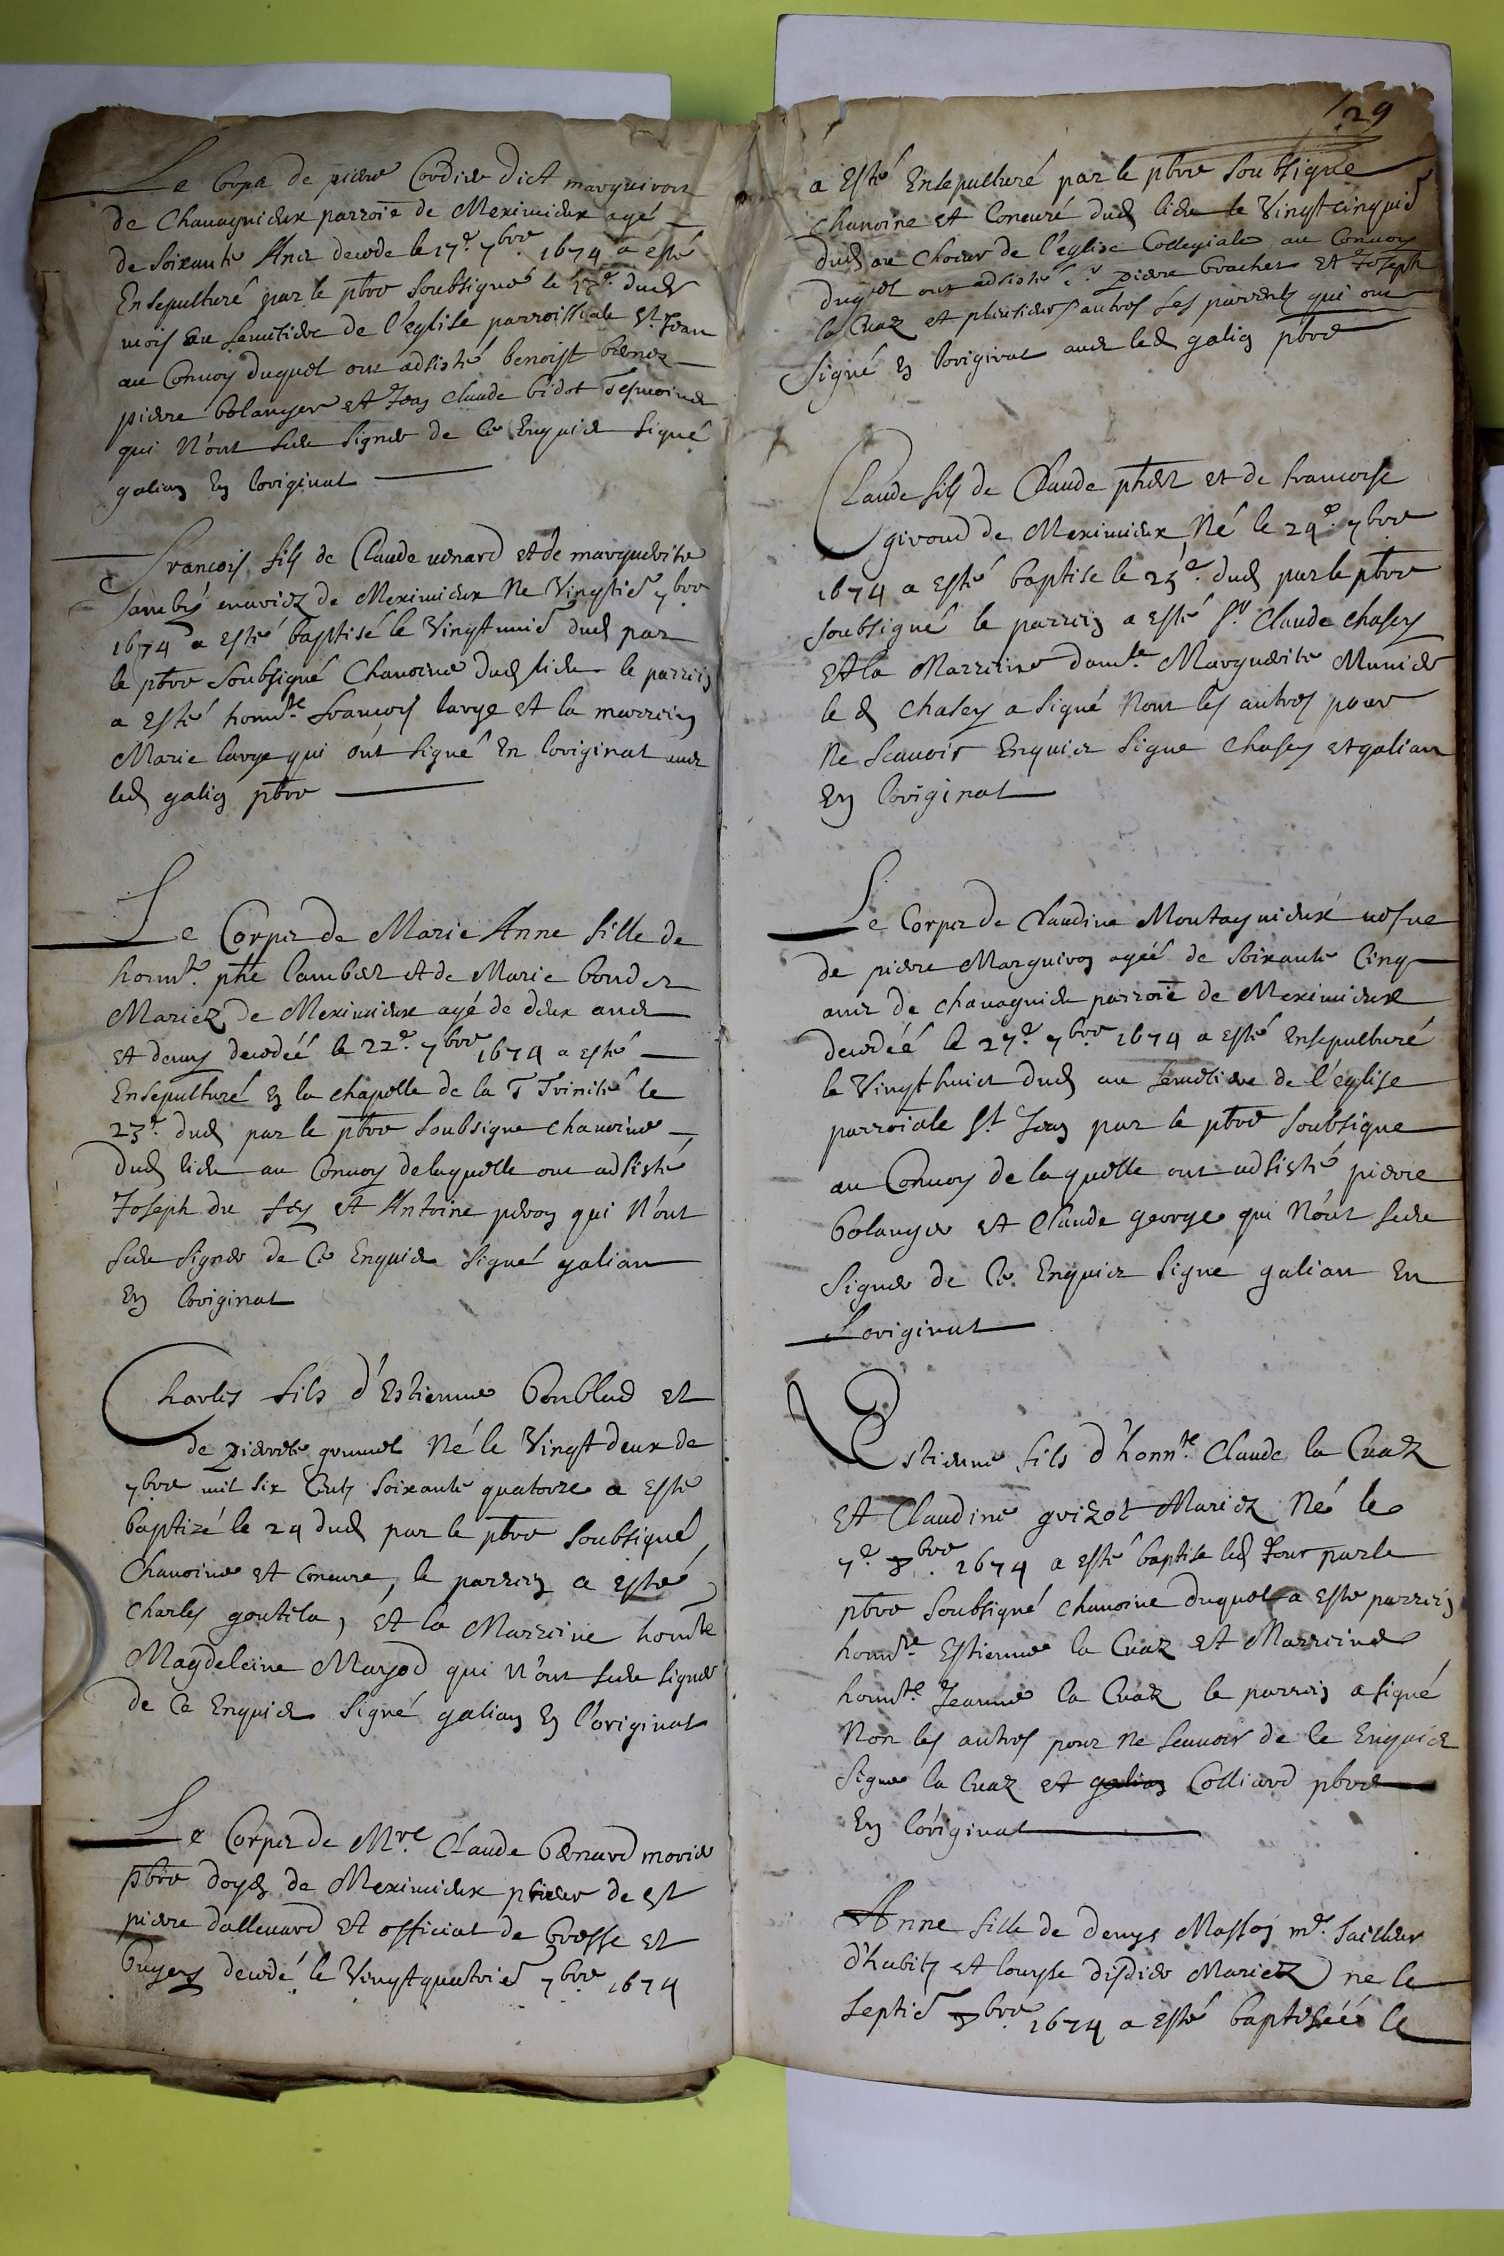 Le Corps de pierre Cordier dict marquivon
de Chauagnieux parroie de Meximieux agé
de soixante Ans decede le 17e. 7bre 1674 a esté
Ensepulturé par le pbre soubsigné le 18e. dud
mois au semetiere de l'eglise parroissiale st. Jean
au Conuoy duquel ont adsisté benoist
pierre bolanger et Jean Claude bidot Tesmoins
qui N'ont sceu signer de Ce Enquis signé
galian En l'original
Francois fils de Claude uenard et de marguerite
Jambé mariez de Meximieux Ne Vingtie 7bre
1674 a esté baptisé le Vingtunie dud par
le pbre soubsigné Chanoine dud lieu le parrein
a esté honnte. francois large et la marrein
Marie large qui ont signé En l'original auec
led galian pbre
Le Corps de Marie Anne fille de
honnte. phe lambert et de Marie bondet
Mariez de Meximieux agé de deux ans
et demy decedéé le 22e. 7bre 1674 a esté
Ensepulturé En la chapelle de la T Trinité le
23e. dud par le pbre soubsigne chanoine
dud lieu au Conuoy de laquelle ont adsisté
Joseph du fey et Antoine peron qui N'ont
sceu signer de Ce Enquis signé galian
En l'original
Charles fils d'Estienne Boublad et
de pierrete grumel Né le Vingt deux de
7bre mil six Cents soixante quatorze a esté
baptizé le 24 dud par le pbre soubsigné
Chanoine et concure, le parrein a esté
Charles goutila, et la Marreine honnte
Magdeleine Marjod qui N'ont sceu signer
de Ce Enquis signé galian En l'original
Le Corps de Mre. Claude bernard morier
pbre doyen de Meximieux prieur de st
pierre dalleuard et official de bresse et
bugey decedé le Vingtquatrie 7bre 1674
129
a esté Ensepulturé par le pbre soubsigné
chanoine et Concuré dud lieu le Vingtcinquie
dud au Choeur de l'eglise Collegiale au Conuoy
duquel ont adsisté sr pierre brachet et Joseph
la Cuaz et plusieurs autres ses parents qui ont
signé En l'original auec led galian pbre
Claude fils de Claude phes et de francoise
giroud de Meximieux Né le 24e. 7bre
1674 a esté baptise le 25e. dud par le pbre
soubsigné le parrein a esté sr. Claude chasey
et la Marreine damle. Marguerite Munier
le d chasey a signé Nont les autres pour
Ne scauoir Enquis signé chasey et galian
En l'original
Le Corps de Claudine Montagnieux uefue
de pierre Marguiron agéé de soixante Cinq
ans de chauagnieu parroie de Meximieux
decedéé le 27e. 7bre 1674 a esté ensepulturé
le Vingthuict dud au semetiere de l'eglise
parroiale st. Jean par le pbre soubsigne
au Conuoy de laquelle ont adsisté pierre
bolanger et Claude george qui N'ont sceu
signer de Ce Enquis signé galian En
l'original
Estienne fils d'honnte. Claude la Cuaz
et Claudine guizot Mariez Né le
7e. 8bre 1674 a esté baptise led Jour par le
pbre soubsigné chanoine duquel a este parrein
honnte. Estienne la Cuaz et Marreine
honnte. Jeanne la Cuaz le parrein a signé
Non les autres pour Ne scauoir de Ce Enquis
signe la Cuaz et galian Colliard pbre
En l'original
Anne fille de denys Masson me. tailleur
d'habits et louyse disdier Mariez ne le
septie 8bre 1674 a esté baptiséé le